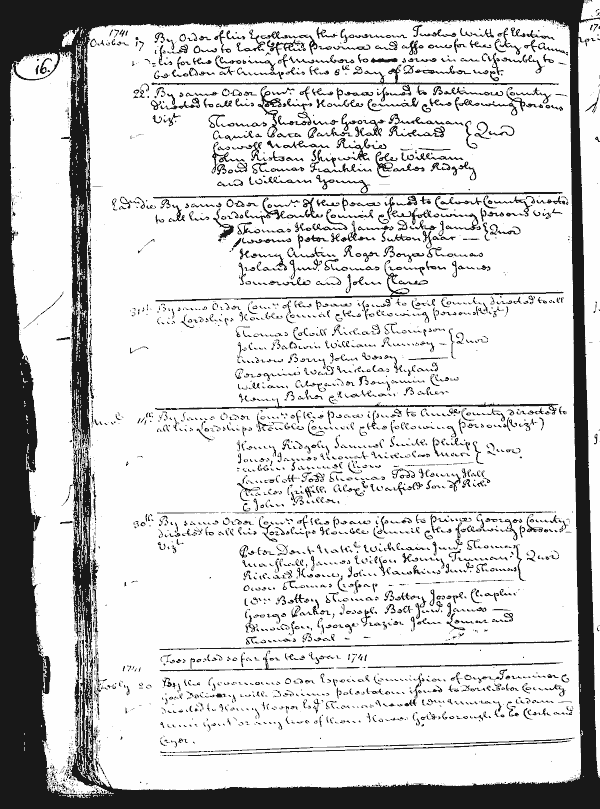 16.
1741
October 17 By Order of his Excellency the Governour Twelve Writs of Election
issued One to Each of the Province and also one for the City of Anna
=lis for the Choosing of Members to serve in an Assembly to
be holden at Annapolis the 8th Day of December next.
22d. By same Order Com:n of the peace issued to Baltimore County
directed to all his Lordships Honble Council & the following persons
Vizt
Thomas Sheredine George Buchanan
Aquila Paca Parker Hall Richard Quor
Caswell Nathan Rigbie
John Risteau Skipwith Cole William
Bond Thomas Franklin Charles Ridgely
and William Young
Ead: die By same Order Com:n of the peace issued to Calvert County directed
to all his Lordships Honble Council & the following persons Vizt
Thomas Holland James Duke James Quor
Weems Peter Hellen Sutton Isaac
Henry Austin Roger Boyce Thomas
Ireland Junr. Thomas Crompton James
Somervile and John Clare
31st By same Order Com:n of the peace issued to Cecil County directed to all
his Lordships Honble Council & the following Persons (Vizt)
Thomas Colvill Richard Thompson
John Baldwin William Rumsey Quor
Andrew Berry John Veasey
Peregrine Ward Nicholas Hyland
William Alexander Benjamin Chew
Henry Baker & Nathan Baker
14th By Same Order Com:n of the peace issued to Annd: County directed to
all his Lordships Honble Council & the following Persons (Vizt)
Henry Ridgely Samuel Smith Philip
Jones, James Mouat Nicholas Quor
Samuel Chew
Lancelott Todd Thomas Todd Henry Hall
Charles Griffith Alexr Warfield Son of Richd
& John Bullen.
30th By same Order Com:n of the peace issued to Prince Georges County
directed to all his Lordships Honble Council & the following persons
Vizt
Peter Dent Nath: Wickham Junr. Thomas
Marshall, James Wilson Henry Truman Quor
Richard Keene, John Hawkins Junr. Thomas
Owen Thomas Cresap
Wm: Thomas Joseph Chaplin
George Parker, Joseph Belt Junr. James
Edmonston, George Frazier John and
Thomas Beal
Fees posted so far for the Year 1741
1741
20 By the Governours Order Especial Commission of Oyer Terminer &
Goal Delivery with Dedimus potestatem issued to Dorchester County
directed to Henry Hooper Esqr Thomas Nevett Wm Murray
Gent or any two of them Howes Goldsborough to be Clerk and
Cryer.